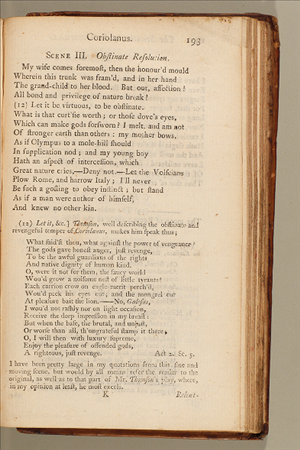 Coriolanus. 193
SCENE III. Obstinate Resolution.
My wife comes foremost, then the honour'd mould
Wherein this trunk was fram'd, and in her hand
The grand-child to her blood. But out, affection!
All bond and privilege of nature break!
(12) Let it be virtuous, to be obstinate.
What is that curt'sie worth; or those dove's eyes,
Which can make gods forsworn? I melt, and am not
Of stronger earth than others: my mother bows,
As if Olympus to a mole-hill should
In supplication nod; and my young boy
Hath an aspect of intercession, which
Great nature cries,—Deny not.—Let the Volscians
Plow Rome, and harrow Italy; I'll never
Be such a gosling to obey instinct; but stand
As if a man were author of himself,
And knew no other kin.
(12) Let it, &c.] Thomson, well describing the obstinate and
revengeful temper of Coriolanus, makes him speak thus;
What said'st thou, what against the power of vengeance?
The gods gave honest anger, just revenge,
To be the awful guardians of the rights
And native dignity of human kind.
O, were it not for them, the saucy world
Wou'd grow a noisome nest of little tyrants!
Each carrion crow on eagle merit perch'd,
Wou'd peck his eyes out, and the mongrel cur
At pleasure bait the lion.—No, Galesus,
I wou'd not rashly nor on light occasion,
Receive the deep impression in my breast:
But when the base, the brutal, and unjust,
Or worse than all, th' ungrateful stamp it there,
O, I will then with luxury supreme,
Enjoy the pleasure of offended gods,
A righteous, just revenge. Act 2. Sc. 5.
I have been pretty large in my quotations from this fine and
moving scene, but would by all means refer the reader to the
original, as well as to that part of Mr. Thomson's play, where,
in my opinion at least, he most excels.
K Relent-